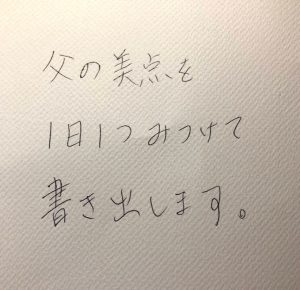 父の美点を
1日1つみつけて
書き出します。